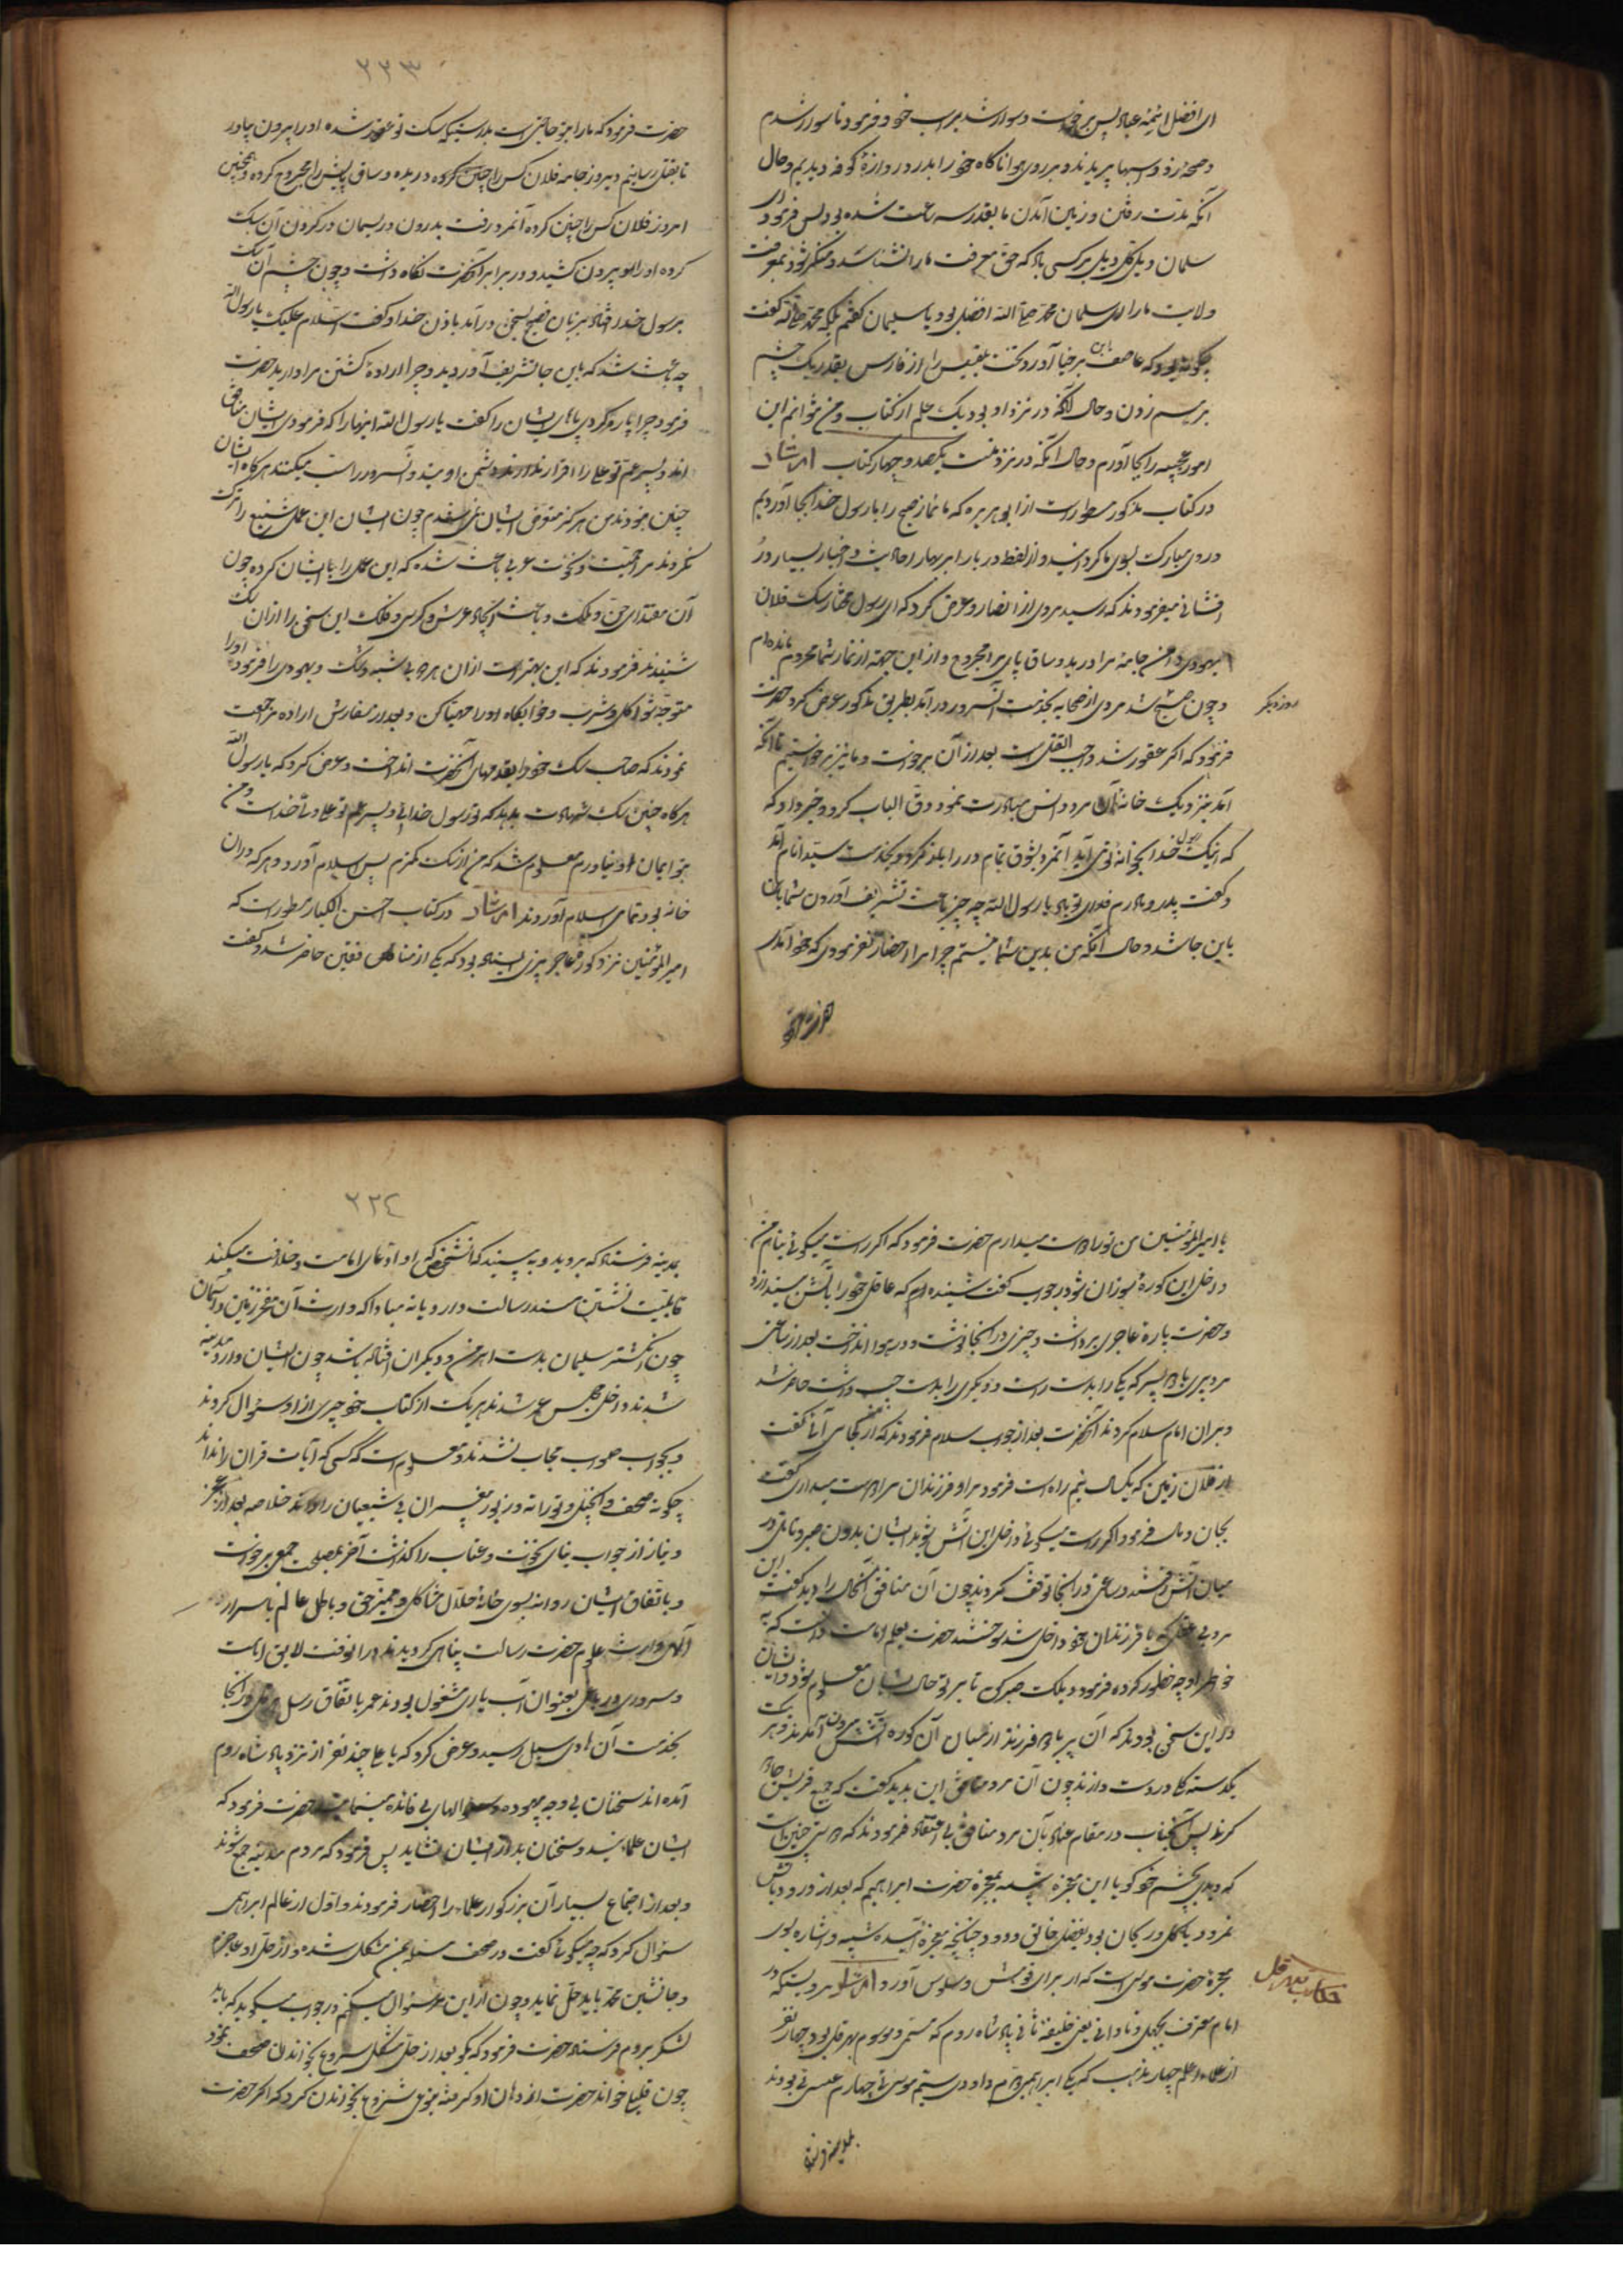 ای افضل ائمه عباد پس برخواست و سوار شد بر اسب خود و فرمود تا سوار شدم
و صیحه زد و اسبها پریدند و بر روی هوا ناگاه خود را بدر دروازهٔ کوفه دیدیم و حال
آنکه مدّت رفتن و زمین آمدن ما بقدر سه ساعت شده بود پس فرمود ای
سلمان ویل کل ویل بر کسی باد که حق معرفت ما را نشناسد و منکر شود معرفت
ولایت ما را ای سلمان محمد صلی الله افضل بود یا سلیمان گفتم بلکه محمد گفت
چگونه بود که عاصف ابن برخیا آورد تخت بلقیس را از فارس بقدر یک چشم
بر هم زدن و حال آنکه در نزد او بود یک علم از کتاب و من نتوانم این
امور عجیبه را بجا آورم و حال آنکه در نزد منست یکصد و چهار کتاب ایضا
در کتاب مذکور مسطور است از ابو هریره که ما نماز صبح را با رسول خدا بجا آوردیم
و روی مبارکت بسوی ما گردانید و از لفظ دربار احادیث و اخبار بسیار در
افشانی میفرمودند که رسید مردی از انصار و عرض کرد که ای رسول مختار سک فلان
یهودی دامن جامهٔ مرا درید و ساق پای مرا مجروح و از این جهة از نماز شما محروم مانده‌ام
روز دیگر
و چون صبح شد مردی از صحابه بخدمت آن سرور درآمد بطریق مذکور عرض کرد حضرت
فرمود که اکر عقور شد واجب القتل است بعد از آن برخواست و ما نیز برخواستیم تا آنکه
آمد بنزدیک خانه آن مرد و انس مبادرت نمود و دق الباب کرد و خبر داد که
که اینک رسول خدا بخانه تو می آید آنمرد بشوق تمام در را باز کرد و بخدمت سید انام آمد
و گفت پدر و مادرم فدای تو باد یا رسول الله چه چیز باعث تشریف آوردن شما بان
باین جا شد و حال آنکه من بدین شما نیستم چرا مرا احضار نفرمودی که خود آمدی
حضرت فرمود
۲۲۳
حضرت فرمود که ما را بتو حاجتی است بدرستیکه سک تو عقور شده او را بیرون بیاور
تا بقتل رسانیم دیروز جامه فلان کس را چنین کرده دریده و ساق پایش را مجروح کرده و همچنین
امروز فلان کس را چنین کرده آنمرد رفت بدرون و ریسمان در گردن آن سک
کرده او را بیرون کشید و در برابر آنحضرت نگاه داشت و چون چشم آن سک
بر رسول خدا افتاد بزبان فصیح بسخن درآمد باذن خدا و گفت السلام علیک یا رسول الله
چه باعث شد که باین جا تشریف آوردید و چرا ارادهٔ کشتن مرا دارید حضرت
فرمود چرا پاره کردی پاهای ایشان را گفت یا رسول الله اینها را که فرمودی ایشان منافق
اند و پسر عم تو علی را اقرار ندارند و دشمن اویند و آن سرور را سب میکنند هر گاه ایشان
چنین نبودند من هرگز متعرض ایشان نمی شدم چون ایشان این عمل شنیع را ترک
نکردند مرا حمیت و نخوت عربی باعث شده که این عمل را بایشان کرده چون
آن مقتدای جن و ملک و باعث ایجاد عرش و کرسی و فلک این سخن را از آن سک
شنیدند فرمودند که این بهتر است از آن هر دو بی شبهه و شک و یهودی را فرمود او را
متوجه شو اکل و شرب و خوابگاه او را مهیا کن و بعد از سفارش اراده مراجعت
نمودند که صاحب سک خود را بقدمهای آنحضرت انداخت و عرض کرد که یا رسول الله
هر گاه چنین سک شهادت بدهد که تو رسول خدایی و پسر عم تو علی ولی خداست و من
بتو ایمان نیاورم معلوم شد که من از سک کمترم پس اسلام آورد و هر که در آن
خانه بود تمامی اسلام آوردند ایضا در کتاب احسن الکبار مسطور است که
امیرالمؤمنین نزد کوره آجرپزی ایستاده بود که یکی از منافقین حاضر شد و گفت
یا امیرالمؤمنین من تو را دوست میدارم حضرت فرمود که اکر راست میکوئی بنام من
داخل این کورهٔ سوزان شو در جواب گفت شنیده ام که عاقل خود را بآتش نمیاندازد
و حضرت پاره آجری برداشت و چیزی در آنجا نوشت و در هوا انداخت بعد از ساعتی
مرد پیری با دو پسر که یکی را بدست راست و دیکری را بدست چپ داشت حاضر شد
و بر آن امام سلام کردند آنحضرت بعد از جواب سلام فرمودند که از کجا می آئی گفت
از فلان زمین که یکسال و نیم راه است فرمود مرا و فرزندان مرا دوست میداری گفت
بجان و مال فرمود اکر راست میکوئی داخل این آتش شوید ایشان بدون صبر و تامل در
میان آتش رفتند و ساعتی در آنجا توقف کردند چون آن منافق آنحال را دید گفت این
مرد بی عقل با فرزندان خود داخل شد سوختند حضرت بعلم امامت دانست که به
خواطر او چه خطور کرده فرمود یک ساعت صبر کن تا بر تو حال ایشان معلوم شود و ایشان
در این سخن بودند که آن پیر با دو فرزند از میان آن کوره آتش بیرون آمدند و هر یک
یکدسته کل در دست دارند چون آن مرد منافق این بدید گفت که جمیع قریش جادو
گرند پس آنجناب در مقام عتاب بآن مرد منافق بی اعتقاد فرمودند که
که دیدی بچشم خود گویا این معجزه شبیه بمعجزه حضرت ابراهیم که بعد از ورود بآتش
نمرود با کل و ریحان بود بفضل خالق ودود چنانچه معجزه آینده شبیه و اشاره بسوی
معجزه حضرت موسی است که از برای قومش و سلوی آورد ایضا مرویست که در
حکایت هرقل
ایام معرف بجهل و نادانی یعنی خلیفه ثانی پادشاه روم که مسمّی و موسوم بهرقل بود چهار نفر
از علما و اعلم چهار مذهب که یکی ابراهیمی دوم داودی سیّم موسوی چهارم عیسوی بودند
بمدینه فرستاد
۲۲۴
بمدینه فرستاد که بروید و ببینید که آنشخصی که او ادعای امامت و خلافت میکند
قابلیت نشستن مسند رسالت دارد یا نه مبادا که وارث آن مفخر زمین و آسمان
چون انگشتر سلیمان بدست اهرمن و دیگران افتاده باشد چون ایشان وارد مدینه
شدند و داخل مجلس عمر شدند هر یک از کتاب خود چیزی از او سؤال کردند
و بجواب صواب مجاب نشدند و معلوم است کسی که آیات قرآن را نداند
چگونه صحف و انجیل و توراة و زبور پیغمبران پیشینیان را داند خلاصه بعد از عجز
و نیاز از جواب بنای نخوت و عتاب را گذاشت آخر بمصلحت جمعی برخواست
و باتفاق ایشان روانه بسوی خانهٔ حلال مشاکل و ممیز حق و باطل عالم باسرار
الهی وارث علوم حضرت رسالت پناهی کردیدند
و سروری در باغی بعنوان آب یاری مشغول بودند عمر باتفاق رسل هرقل در آنجا
بخدمت آن هادی سبل رسید و عرض کرد که یا علی چند نفر از نزد پادشاه روم
آمده اند سخنان بی وجه بیهوده و سوالهای بی فائده مینمایند حضرت فرمود که
ایشان علمایند و سخنان بد از ایشان نشاید پس فرمود که مردم مدینه جمع شوند
و بعد از اجتماع بسیار آن بزرگوار علماء را احضار فرمودند و اول از عالم ابراهیمی
سؤال کرد که چه میگوئی گفت در صحف مسئله بمن مشکل شده و از حل او عاجزم
و جانشین محمد باید حل نماید و چون از این عمر سؤال میکنم در جواب میگوید که باید
لشکر بروم فرستاد حضرت فرمود که بگو بعد از حل مشکل شروع بخواندن صحف نمود
چون قلیلی خواند حضرت از دهان او گرفته بنوعی شروع بخواندن کرد که اکر حضرت